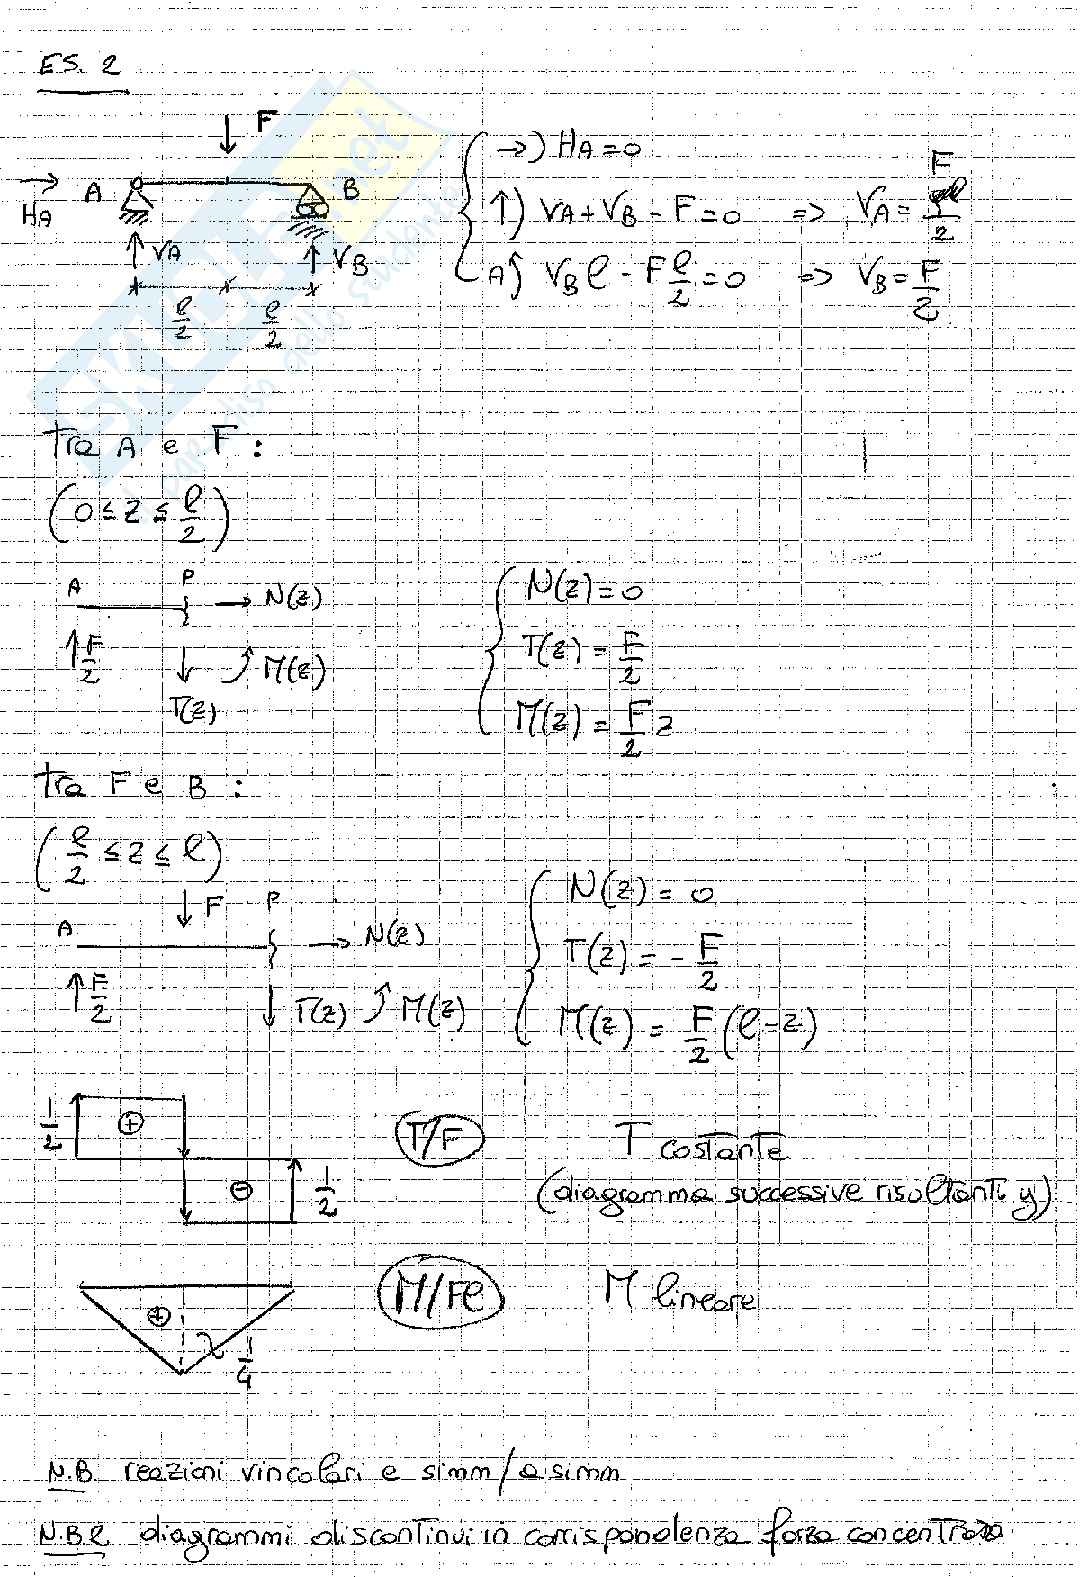 ES. 2
F
A
B
HA
VA
VB
ℓ/2
ℓ/2
→) HA = 0
↑) VA + VB - F = 0 => VA = F/2
A↺) VB ℓ - F ℓ/2 = 0 => VB = F/2
tra A e F:
(0 ≤ z ≤ ℓ/2)
A
P
N(z)
F/2
M(z)
T(z)
N(z) = 0
T(z) = F/2
M(z) = F/2 z
tra F e B:
(ℓ/2 ≤ z ≤ ℓ)
F
P
A
N(z)
F/2
T(z)
M(z)
N(z) = 0
T(z) = - F/2
M(z) = F/2 (ℓ-z)
1/2
+
-
1/2
T/F
T costante
(diagramma successive risultanti y)
+
1/4
M/Fℓ
M lineare
N.B. reazioni vincolari e simm/asimm
diagrammi discontinui in corrispondenza forza concentrata